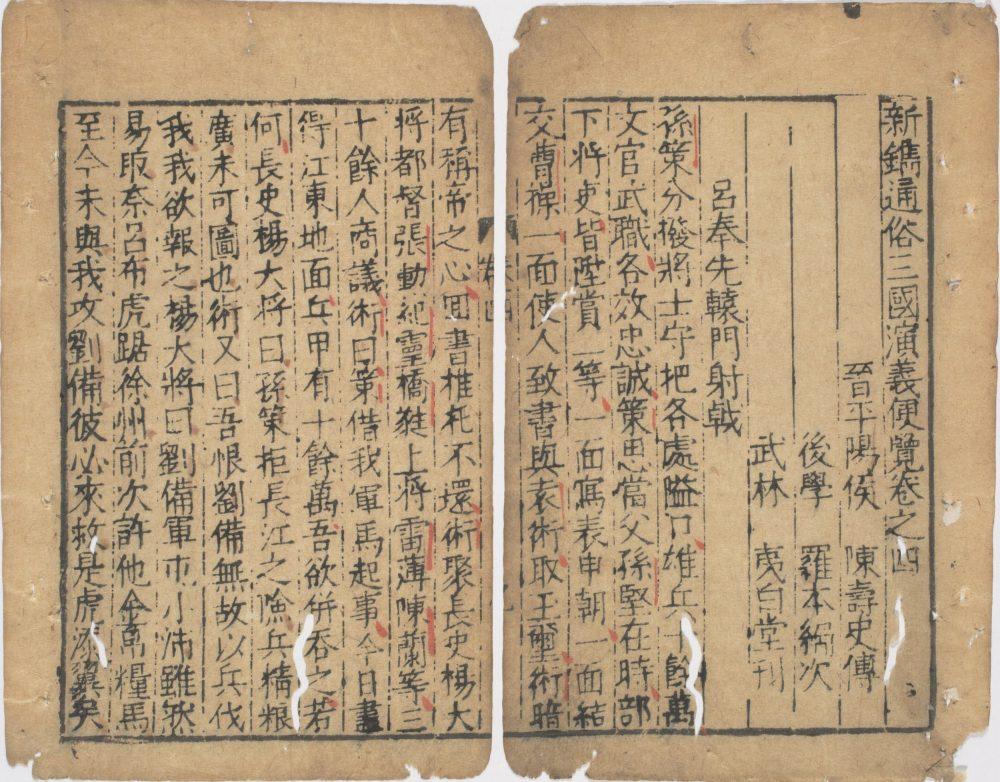 新鐫通俗三國演義便覽卷之四
晉平陽侯 陳壽史傳
後學 羅本編次
武林 夷白堂刊
呂奉先轅門射戟
孫策分撥將士守把各處隘口雄兵十餘萬
文官武職各效忠誠策思當父孫堅在時部
下將吏皆陞賞一等一面寫表申朝一面結
交曹操一面使人致書與袁術取玉璽術暗
卷四
有稱帝之心回書推托不還術聚長史楊大
將都督張勳紀靈橋蕤上將雷薄陳蘭等三
十餘人商議術曰策借我軍馬起事今日盡
得江東地面兵甲有十餘萬吾欲併吞之若
何長史楊大將曰孫策拒長江之險兵精粮
廣未可圖也術又曰吾恨劉備無故以兵伐
我我欲報之楊大將曰劉備軍屯小沛雖然
易取奈呂布虎踞徐州前次許他金萬糧馬
至今未與我攻劉備彼必來救是虎添翼矣